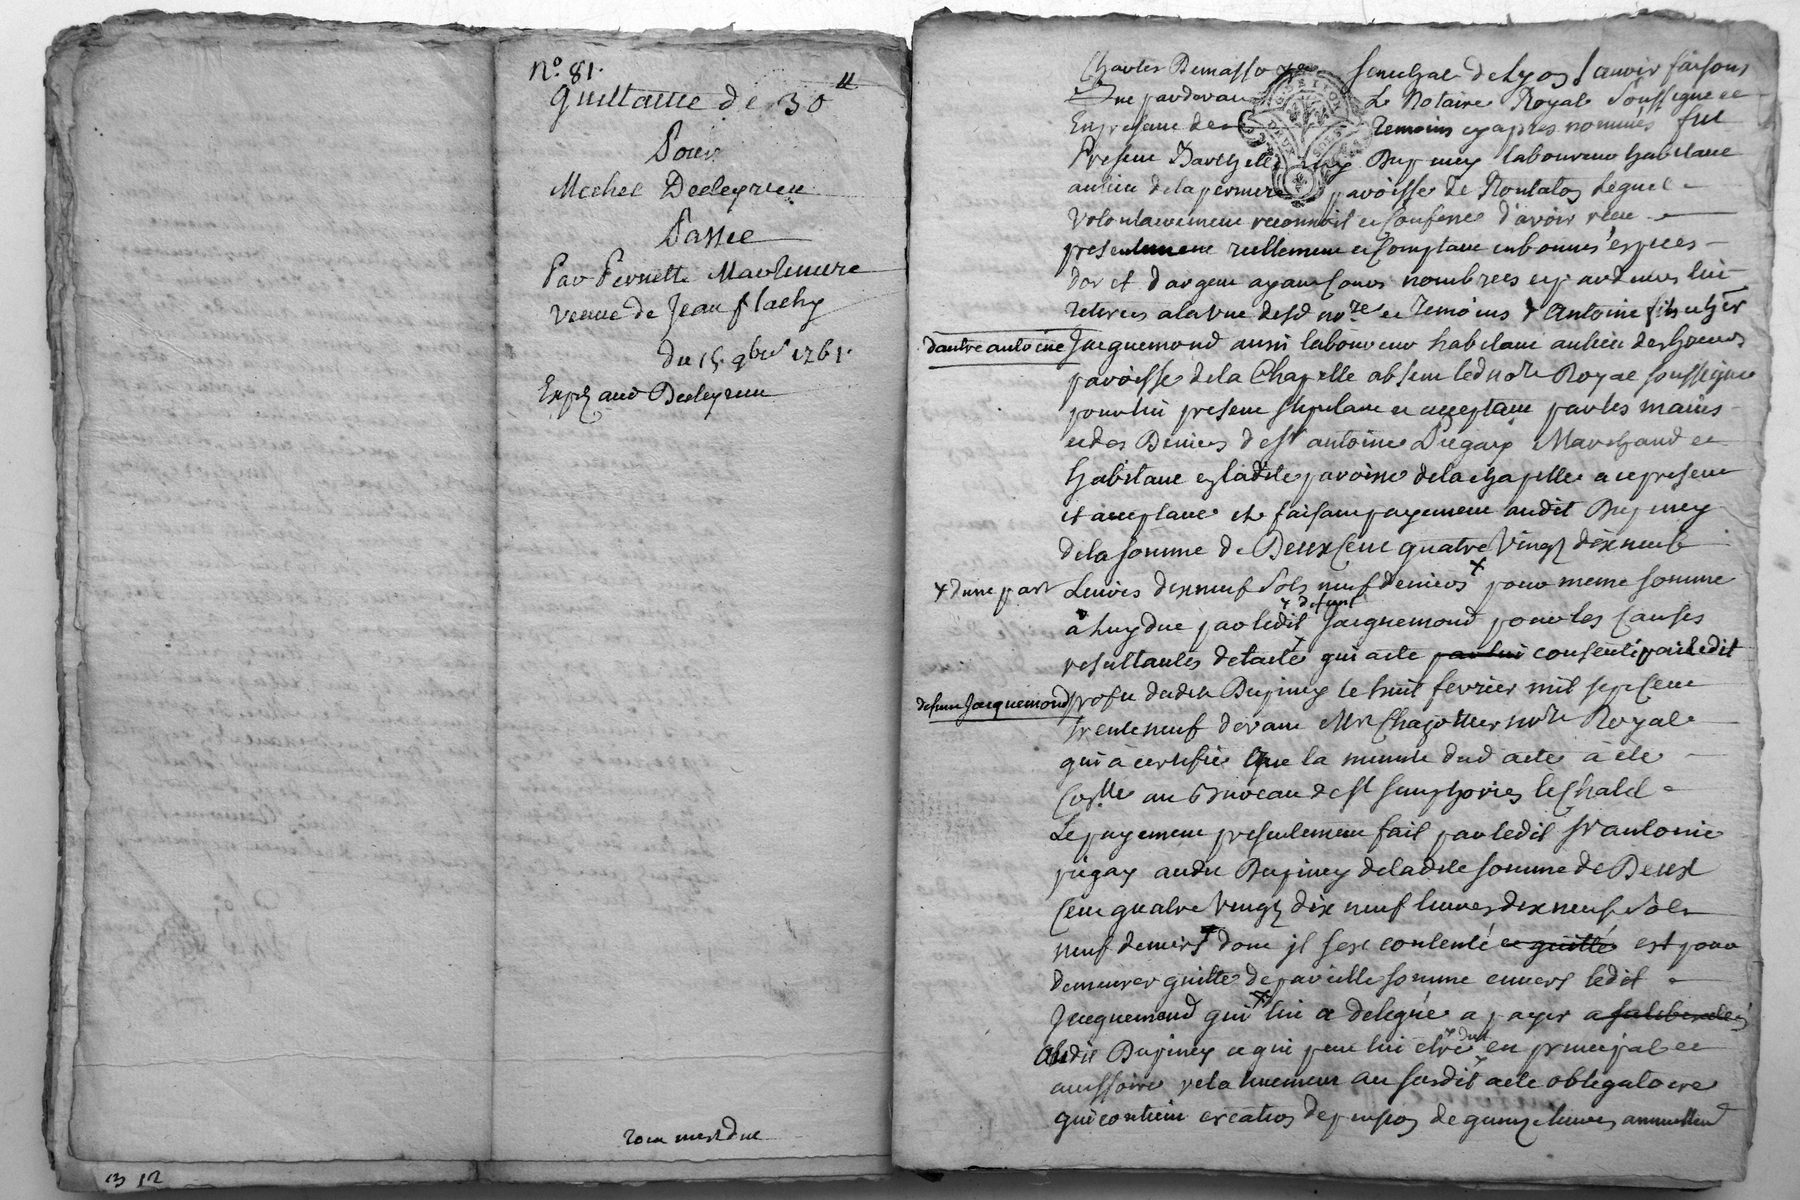 n.° 81.
Quittance de 30 ⁋
Pour
Michel Deleyrieu
Passée
Par Pernette
veuve de Jean flachy
du 15. 9bre 1761.
Expé aud Deleyrieu
rien n'est due
3 12
Charles Demasso Senechal de Lyon Scavoir faisons
que pardevant Le Notaire Royal Soussigné et
En presence des temoins cy apres nommés fut
Present Barthelemy Dupiney laboureur habitant
au lieu de la paroisse de Rontalon lequel
volontairement reconnoit et confesse d'avoir receu
presentement reellement et Comptant en bonnes especes
dor et d'argent ayant Cours nombrées et par devers lui
retirées a la vue desd no.re et temoins d Antoine fils et her
d'autre antoine Jacquemond aussi laboureur habitant au lieu des
paroisse de la Chapelle absent led no.re Royal soussigné
pour lui present stipulant et acceptant par les mains
et des Deniers de sr antoine Pegay Marchand et
habitant en ladite paroisse de la chapelle a ce present
et acceptant et faisant payement audit Dupiney
de la somme de Deux Cent quatre Vingt dix neuf
+ d'une part Livres dix neuf Sols neuf deniers + pour meme somme
+ defunt
à luy due par ledit Jacquemond pour les Causes
resultantes de l'acte qui acte par lui consenti par ledit
defunt Jacquemond profit dudit Dupiney le huit fevrier mil sept Cent
trente neuf devant Me Chazottier no.re Royal
qui à certifié que la minute dud acte à été
Coll.ée au Bureau de St Simphorien le Chatel
Le payement presentement fait par ledit Sr antoine
pegay audit Dupiney de ladite somme de Deux
Cent quatre Vingt dix neuf livres dix neuf Sols
neuf deniers dont il sest contenté et quitté est pour
demeurer quitte de pareille somme envers ledit
Jacquemond qui lui a delegué a payer a
+ dut
audit Dupiney ce qui peut lui etre en principal et
accessoire relativement au susdit acte obligatoire
qui contient creation de pension de quinze livres annuellemt